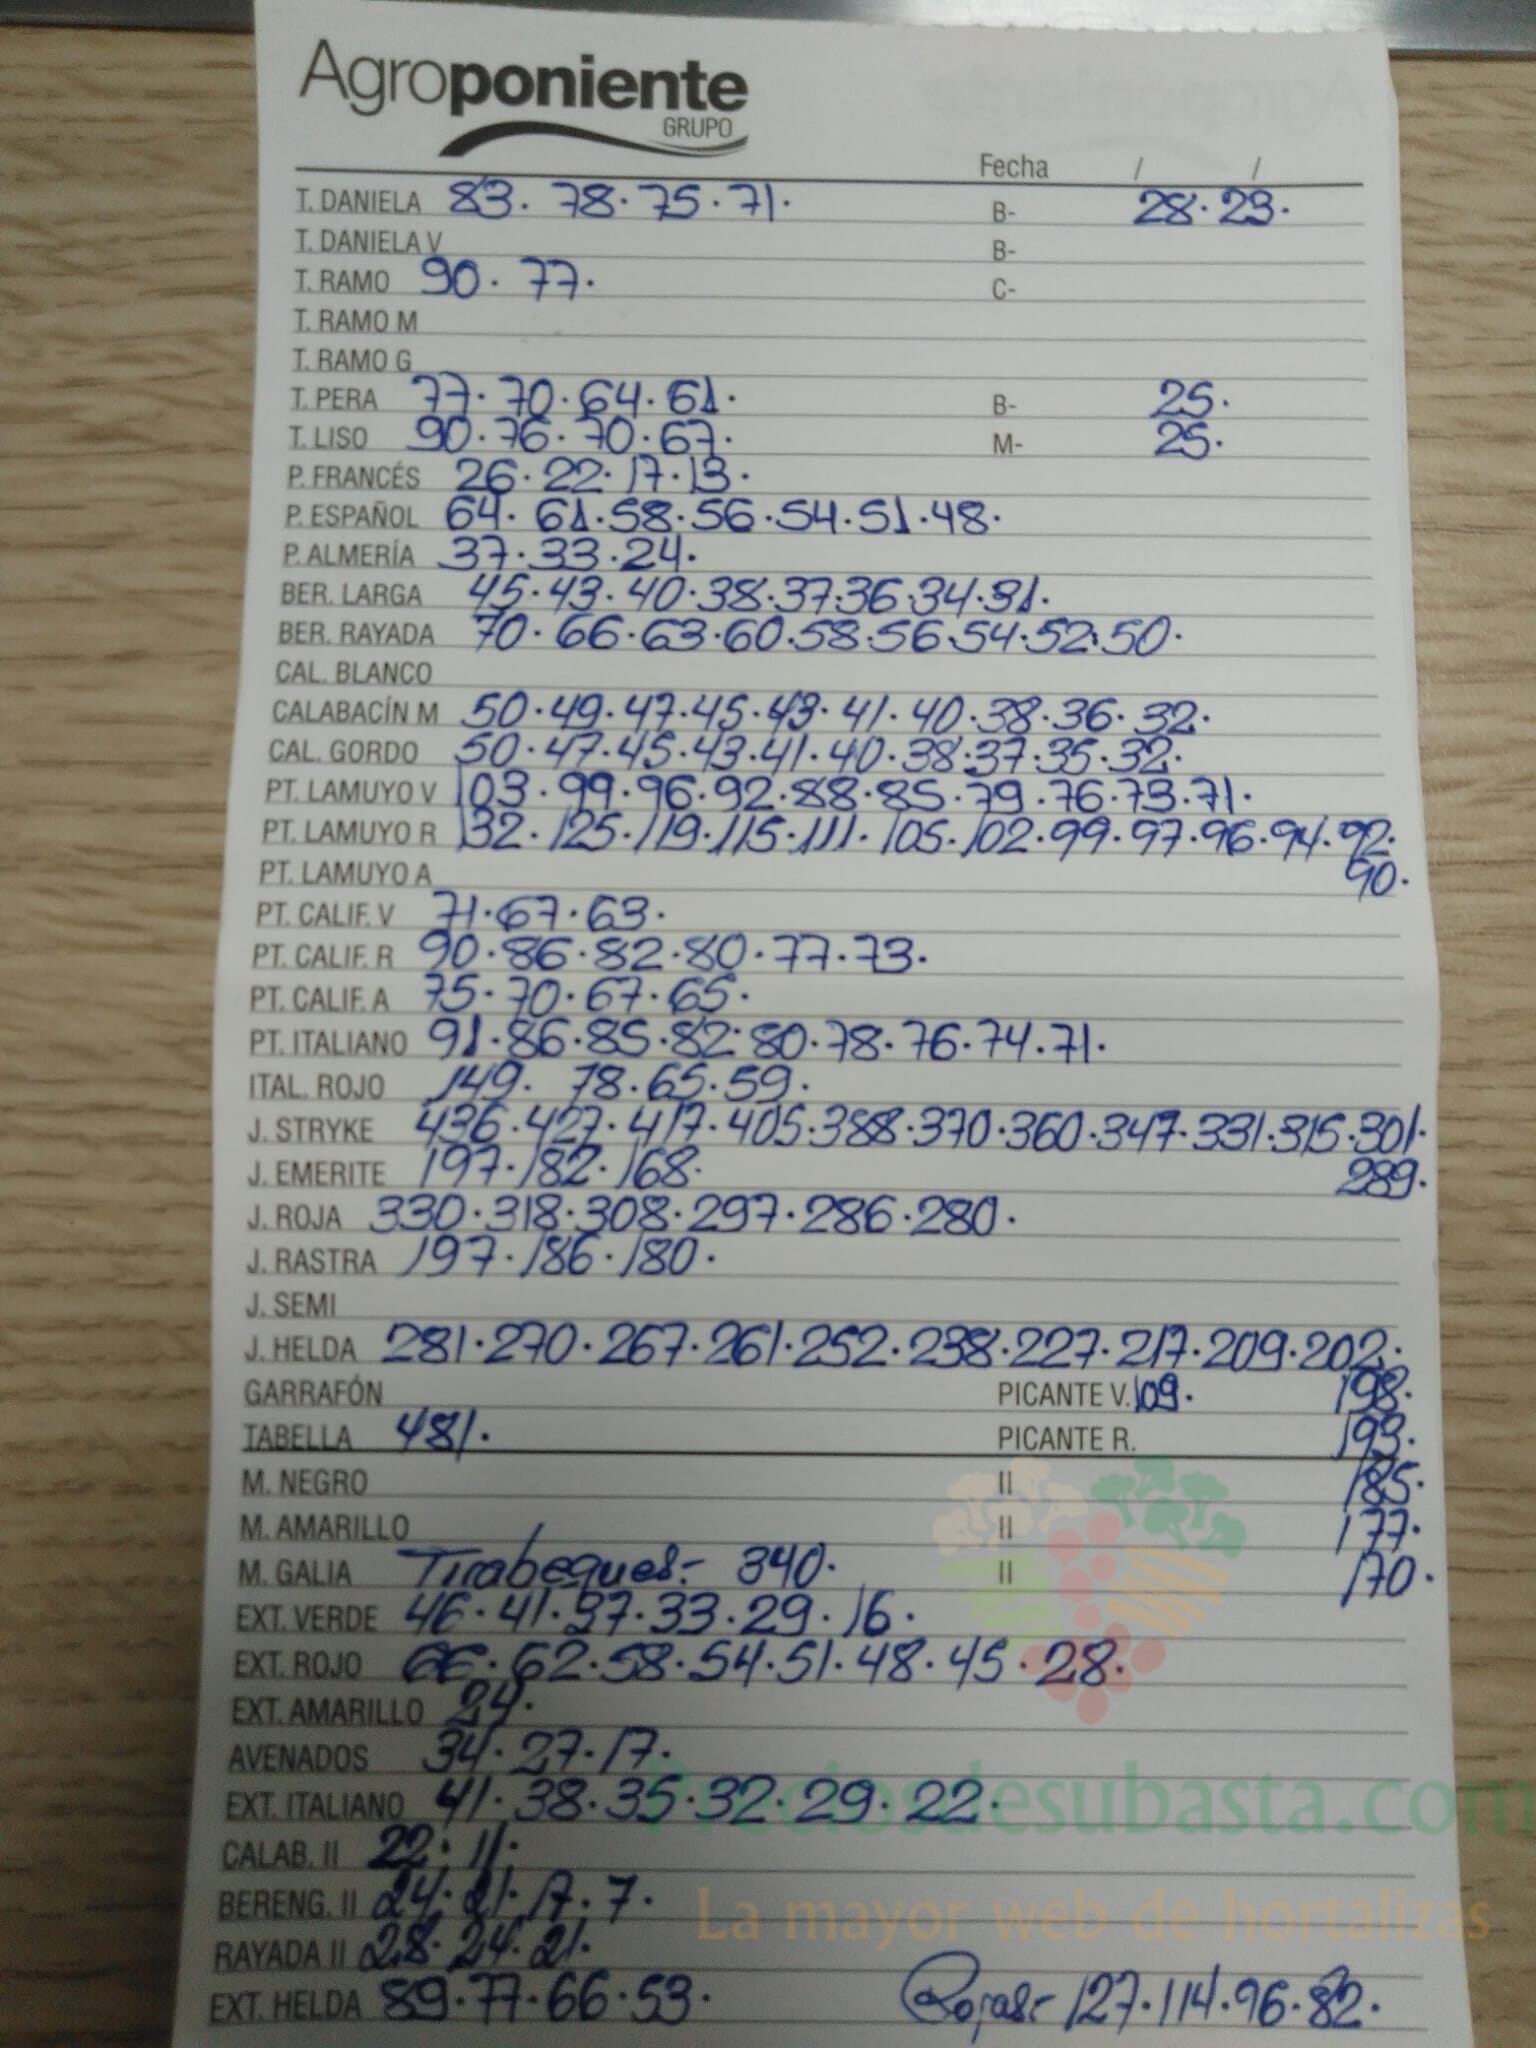 Agroponiente
GRUPO
Fecha / /
T. DANIELA 83. 78. 75. 71. B- 28. 23.
T. DANIELA V B-
T. RAMO 90. 77. C-
T. RAMO M
T. RAMO G
T. PERA 77. 70. 64. 61. B- 25.
T. LISO 90. 76. 70. 67. M- 25.
P. FRANCÉS 26. 22. 17. 13.
P. ESPAÑOL 64. 61. 58. 56. 54. 51. 48.
P. ALMERÍA 37. 33. 24.
BER. LARGA 45. 43. 40. 38. 37. 36. 34. 31.
BER. RAYADA 70. 66. 63. 60. 58. 56. 54. 52. 50.
CAL. BLANCO
CALABACÍN M 50. 49. 47. 45. 43. 41. 40. 38. 36. 32.
CAL. GORDO 50. 47. 45. 43. 41. 40. 38. 37. 35. 32.
PT. LAMUYO V 103. 99. 96. 92. 88. 85. 79. 76. 73. 71.
PT. LAMUYO R 132. 125. 119. 115. 111. 105. 102. 99. 97. 96. 94. 92.
PT. LAMUYO A 90.
PT. CALIF. V 71. 67. 63.
PT. CALIF. R 90. 86. 82. 80. 77. 73.
PT. CALIF. A 75. 70. 67. 65.
PT. ITALIANO 91. 86. 85. 82. 80. 78. 76. 74. 71.
ITAL. ROJO 149. 78. 65. 59.
J. STRYKE 436. 427. 417. 405. 388. 370. 360. 347. 331. 315. 301.
J. EMERITE 197. 182. 168. 289.
J. ROJA 330. 318. 308. 297. 286. 280.
J. RASTRA 197. 186. 180.
J. SEMI
J. HELDA 281. 270. 267. 261. 252. 238. 227. 217. 209. 202.
GARRAFÓN PICANTE V. 109. 198.
TABELLA 481. PICANTE R. 193.
M. NEGRO II 185.
M. AMARILLO II 177.
M. GALIA Tirabeques.- 340. II 170.
EXT. VERDE 46. 41. 37. 33. 29. 16.
EXT. ROJO 66. 62. 58. 54. 51. 48. 45. 28.
EXT. AMARILLO 24.
AVENADOS 34. 27. 17.
Preciosdesubasta.com
EXT. ITALIANO 41. 38. 35. 32. 29. 22.
CALAB. II 22. 11.
BERENG. II 24. 21. 17. 7.
La mayor web de hortalizas
RAYADA II 28. 24. 21.
EXT. HELDA 89. 77. 66. 53. Rojas.- 127. 114. 96. 82.